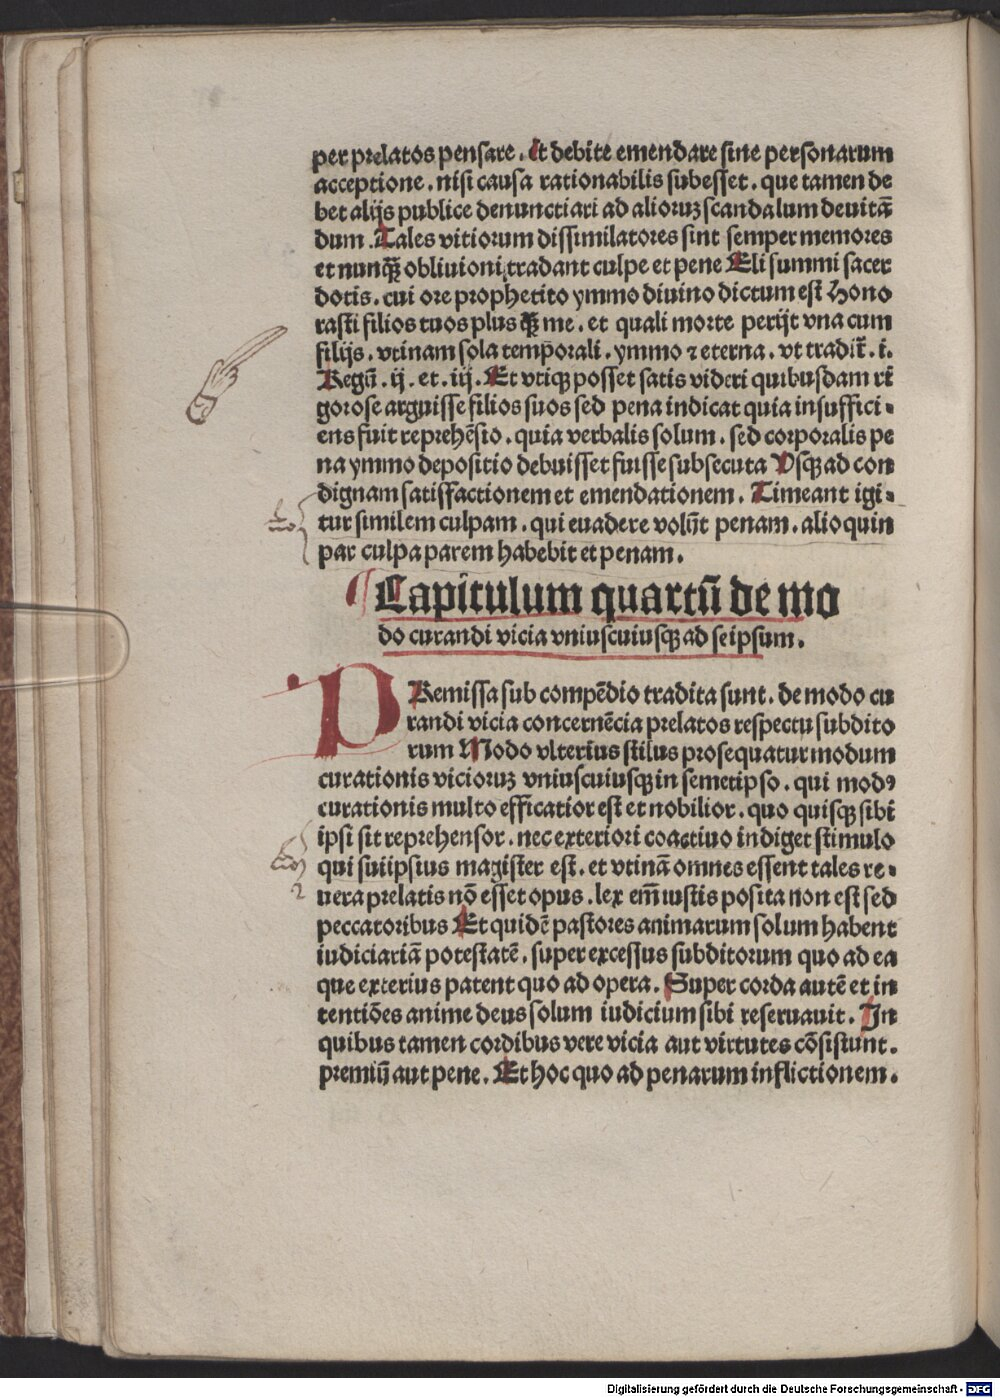 per prelatos pensare . Et debite emendare sine personarum
acceptione . nisi causa rationabilis subesset . que tamen de
bet alijs publice denunctiari ad alioruꝫ scandalum deuitā
dum . Tales vitiorum dissimilatores sint semper memores
et nunqꝫ̄ obliuioni tradant culpe et pene Eli summi sacer
dotis . cui ore prophetito ymmo diuino dictum est Hono
rasti filios tuos plus qꝫ̄ me . et quali morte perijt vna cum
filijs . vtinam sola temporali . ymmo ⁊ eterna . vt tradit̄ . i.
Regū . ij . et . iij . Et vtiqꝫ posset satis videri quibusdam ri
gorose arguisse filios suos sed pena indicat quia insuffici-
ens fuit reprehēsio . quia verbalis solum . sed corporalis pe
na ymmo depositio debuisset fuisse subsecuta Vsqꝫ ad con
dignam satisfactionem et emendationem . Timeant igi-
tur similem culpam . qui euadere volūt penam . alioquin
par culpa parem habebit et penam .
Capitulum quartū de mo
do curandi vicia vniuscuiusqꝫ ad seipsum .
PRemissa sub compēdio tradita sunt . de modo cu
randi vicia concernēcia prelatos respectu subdito
rum Modo vlterius stilus prosequatur modum
curationis vicioruꝫ vniuscuiusqꝫ in semetipso . qui modꝰ
curationis multo efficatior est et nobilior . quo quisqꝫ sibi
ipsi sit reprehensor . nec exteriori coactiuo indiget stimulo
qui suiipsius magister est . et vtinā omnes essent tales re-
uera prelatis nō esset opus . lex em̄ iustis posita non est sed
peccatoribus Et quidē pastores animarum solum habent
iudiciariā potestatē . super excessus subditorum quo ad ea
que exterius patent quo ad opera . Super corda autē et in
tentiōes anime deus solum iudicium sibi reseruauit . In
quibus tamen cordibus vere vicia aut virtutes cōsistunt .
premiū aut pene . Et hoc quo ad penarum inflictionem .
Digitalisierung gefördert durch die Deutsche Forschungsgemeinschaft - DFG